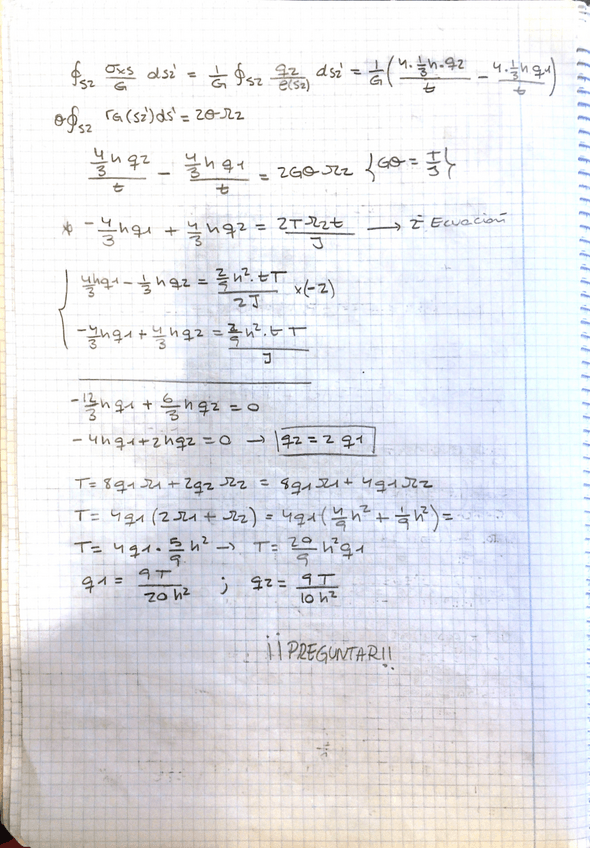 ∮s2 σxs/G ds2' = 1/G ∮s2 q2/e(s2) ds2' = 1/G (4·1/3h·q2/t − 4·1/3h q1/t)
θ∮s2 rG(s2')ds' = 2θΩ2
4/3 h q2/t − 4/3 h q1/t = 2GθΩ2 {Gθ = T/J}
* −4/3 h q1 + 4/3 h q2 = 2TΩ2t/J → 2ª Ecuación
4hq1/3 − 1/3 h q2 = 2/9 h²·tT/2J ×(−2)
−4/3 h q1 + 4/3 h q2 = 2/9 h²·t T/J
−12/3 h q1 + 6/3 h q2 = 0
−4hq1 + 2hq2 = 0 → q2 = 2 q1
T = 8q1Ω1 + 2q2Ω2 = 8q1Ω1 + 4q1Ω2
T = 4q1(2Ω1 + Ω2) = 4q1(4/9 h² + 1/9 h²) =
T = 4q1·5/9 h² → T = 20/9 h²q1
q1 = 9T/20h² ; q2 = 9T/10h²
¡¡PREGUNTAR!!